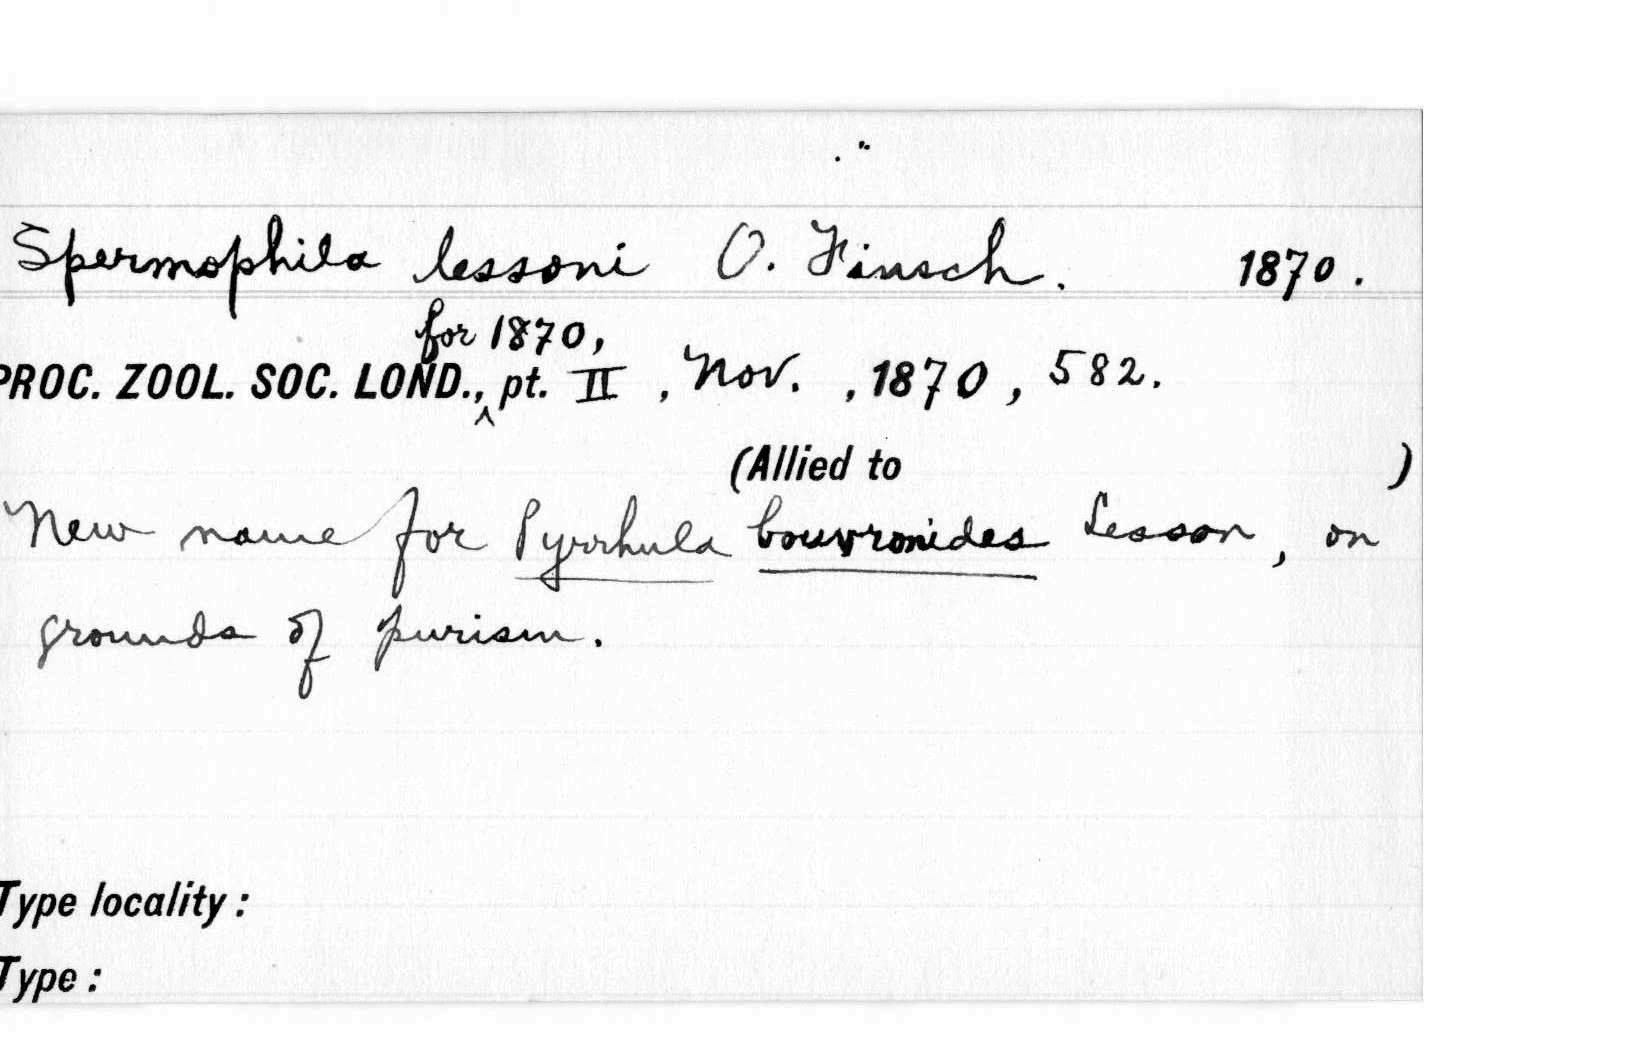 Spermophila lessoni O. Finsch. 1870.
for 1870,
PROC. ZOOL. SOC. LOND., ^ pt. II, Nov. , 1870, 582.
(Allied to )
New name for Pyrrhula bouvronides Lesson, on
grounds of purism.
Type locality :
Type :